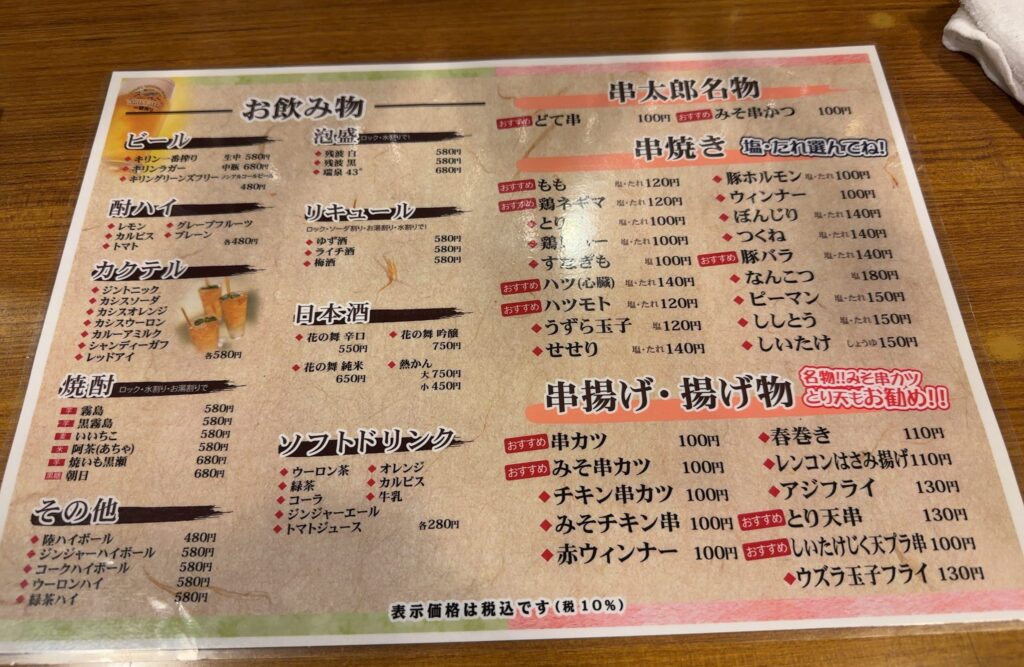 お飲み物
ビール
キリン一番搾り 生中 580円
キリンラガー 中瓶 680円
キリングリーンズフリー ノンアルコールビール
480円
酎ハイ
レモン グレープフルーツ
カルピス プレーン
トマト 各480円
カクテル
ジントニック
カシスソーダ
カシスオレンジ
カシスウーロン
カルーアミルク
シャンディーガフ
レッドアイ 各580円
焼酎 ロック・水割り・お湯割りで
芋 霧島 580円
芋 黒霧島 580円
麦 いいちこ 580円
米 阿茶(あちゃ) 580円
芋 焼いも黒瀬 680円
黒糖 朝日 680円
その他
陸ハイボール 480円
ジンジャーハイボール 580円
コークハイボール 580円
ウーロンハイ 580円
緑茶ハイ 580円
泡盛 ロック・水割りで!
残波 白 580円
残波 黒 580円
瑞泉 43° 680円
リキュール
ロック・ソーダ割り・お湯割り・水割りで!
ゆず酒 580円
ライチ酒 580円
梅酒 580円
日本酒
花の舞 辛口 550円
花の舞 吟醸 750円
花の舞 純米 650円
熱かん 大 750円
小 450円
ソフトドリンク
ウーロン茶 オレンジ
緑茶 カルピス
コーラ 牛乳
ジンジャーエール
トマトジュース 各280円
串太郎名物
おすすめ どて串 100円 おすすめ みそ串かつ 100円
串焼き 塩・たれ選んでね!
おすすめ もも 塩・たれ 120円
おすすめ 鶏ネギマ 塩・たれ 120円
とり 塩・たれ 100円
鶏 塩・たれ 100円
すなぎも 塩 100円
おすすめ ハツ(心臓) 塩・たれ 140円
おすすめ ハツモト 塩・たれ 120円
うずら玉子 塩 120円
せせり 塩・たれ 140円
豚ホルモン 塩・たれ 100円
ウィンナー 塩 100円
ぼんじり 塩・たれ 140円
つくね 塩・たれ 140円
おすすめ 豚バラ 塩・たれ 140円
なんこつ 塩 180円
ピーマン 塩・たれ 150円
ししとう 塩・たれ 150円
しいたけ しょうゆ 150円
串揚げ・揚げ物 名物!!みそ串カツ
とり天もお勧め!!
おすすめ 串カツ 100円
おすすめ みそ串カツ 100円
チキン串カツ 100円
みそチキン串 100円
赤ウィンナー 100円
春巻き 110円
レンコンはさみ揚げ 110円
アジフライ 130円
おすすめ とり天串 130円
おすすめ しいたけじく天プラ串 100円
ウズラ玉子フライ 130円
表示価格は税込です(税10%)